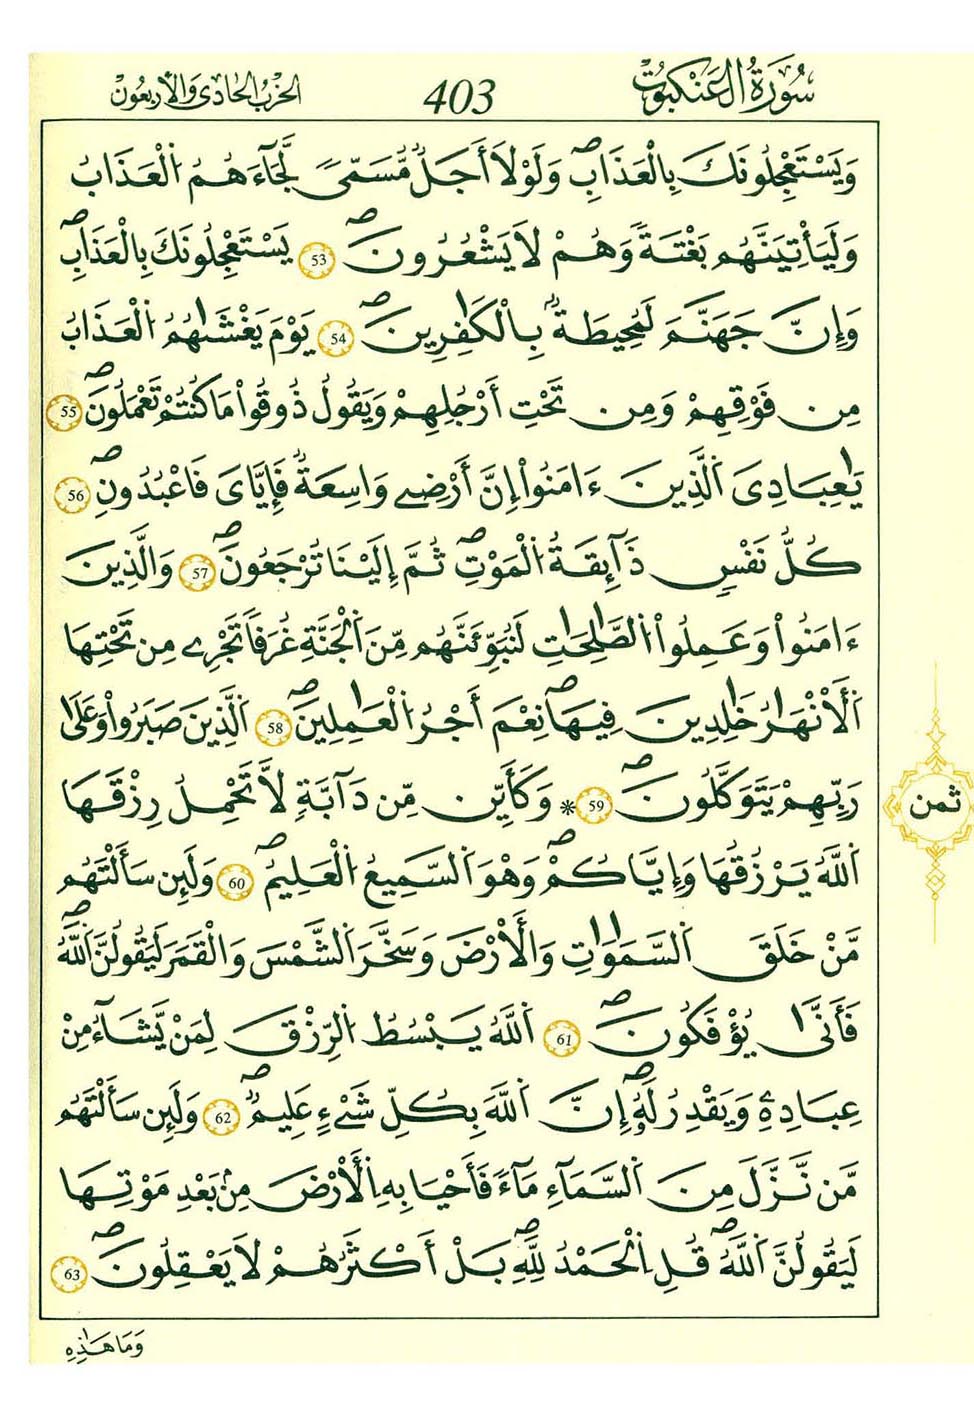 سُورَةُ الْعَنكَبُوتِ 403 الحِزْبُ الحَادِي وَالأَرْبَعُونَ
وَيَسْتَعْجِلُونَكَ بِالْعَذَابِۖ وَلَوْلَآ أَجَلٞ مُّسَمّيٗ لَّجَآءَهُمُ اُ۬لْعَذَابُ
وَلَيَأْتِيَنَّهُم بَغْتَةٗ وَهُمْ لَا يَشْعُرُونَۖ 53 يَسْتَعْجِلُونَكَ بِالْعَذَابِۖ
وَإِنَّ جَهَنَّمَ لَمُحِيطَةُۢ بِالْكَٰفِرِينَۖ 54 يَوْمَ يَغْشَيٰهُمُ اُ۬لْعَذَابُ
مِن فَوْقِهِمْ وَمِن تَحْتِ أَرْجُلِهِمْ وَيَقُولُ ذُوقُواْ مَا كُنتُمْ تَعْمَلُونَۖ 55
يَٰعِبَادِيَ اَ۬لذِينَ ءَامَنُوٓاْ إِنَّ أَرْضِے وَٰسِعَةٞ فَإِيَّايَ فَاعْبُدُونِۖ 56
كُلُّ نَفْسٖ ذَآئِقَةُ اُ۬لْمَوْتِۖ ثُمَّ إِلَيْنَا تُرْجَعُونَۖ 57 وَالذِينَ
ءَامَنُواْ وَعَمِلُواْ اُ۬لصَّٰلِحَٰتِ لَنُبَوِّئَنَّهُم مِّنَ اَ۬لْجَنَّةِ غُرَفاٗ تَجْرِے مِن تَحْتِهَا
اَ۬لْأَنْهَٰرُ خَٰلِدِينَ فِيهَاۖ نِعْمَ أَجْرُ اُ۬لْعَٰمِلِينَۖ 58 اَ۬لذِينَ صَبَرُواْ وَعَلَىٰ
رَبِّهِمْ يَتَوَكَّلُونَۖ 59 * وَكَأَيِّن مِّن دَآبَّةٖ لَّا تَحْمِلُ رِزْقَهَا
ثمن
اَ۬للَّهُ يَرْزُقُهَا وَإِيَّاكُمْۖ وَهْوَ اَ۬لسَّمِيعُ اُ۬لْعَلِيمُۖ 60 وَلَئِن سَأَلْتَهُم
مَّنْ خَلَقَ اَ۬لسَّمَٰوَٰتِ وَالْأَرْضَ وَسَخَّرَ اَ۬لشَّمْسَ وَالْقَمَرَ لَيَقُولُنَّ اَ۬للَّهُۖ
فَأَنّىٰ يُؤْفَكُونَۖ 61 اَ۬للَّهُ يَبْسُطُ اُ۬لرِّزْقَ لِمَنْ يَّشَآءُ مِنْ
عِبَادِهِۦ وَيَقْدِرُ لَهُۥٓۖ إِنَّ اَ۬للَّهَ بِكُلِّ شَيْءٍ عَلِيمٞۖ 62 وَلَئِن سَأَلْتَهُم
مَّن نَّزَّلَ مِنَ اَ۬لسَّمَآءِ مَآءٗ فَأَحْيَا بِهِ اِ۬لْأَرْضَ مِنۢ بَعْدِ مَوْتِهَا
لَيَقُولُنَّ اَ۬للَّهُۖ قُلِ اِ۬لْحَمْدُ لِلهِۖ بَلْ أَكْثَرُهُمْ لَا يَعْقِلُونَۖ 63
وَمَا هَٰذِهِ